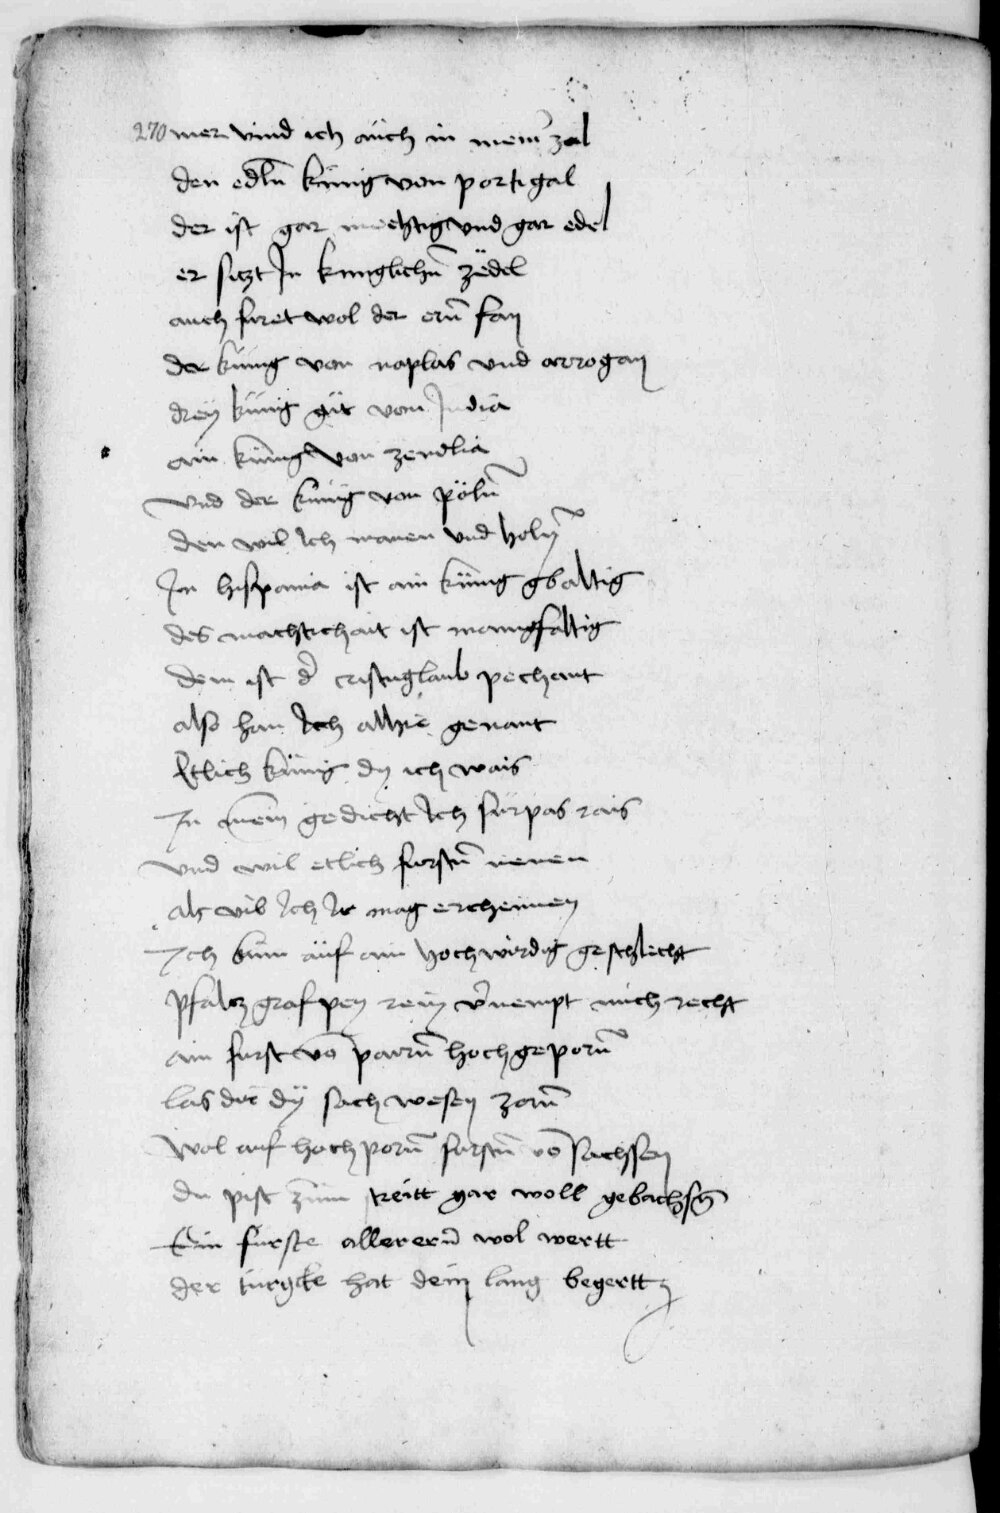 270 mer vind ich auch in mein zal
den edln künig von portigal
der ist gar mechtig vnd gar edel
er siczt In kuniglichn zëdel
auch furet wol der ern fan
der künig von naplas vnd arrogan
dreÿ künig güt von India
ain künig von zendlia
vnd der künig von pöln
den wil Ich manen vnd holn
In hispania ist ain künig gbaltig
des machtichait ist manigfaltig
dem ist der cristnglaub pechant
also han Ich alhie genant
Etlich künig dy ich wais
In mein gedicht Ich fürpas rais
vnd wil etlich furstn nenen
als vil Ich Ir mag erchennen
Ich kum auf ain hochwirdig geschlecht
pfalcz graf peÿ rein vernempt mich recht
ain furst vo pairn hochgeporn
las dir dÿ sach wesen zorn
Wol auf hochporn furstn vo sachssen
du pist zum streitt gar woll gebachsn
Ein furste aller ern wol wertt
der türgcke hat dein lang begertt